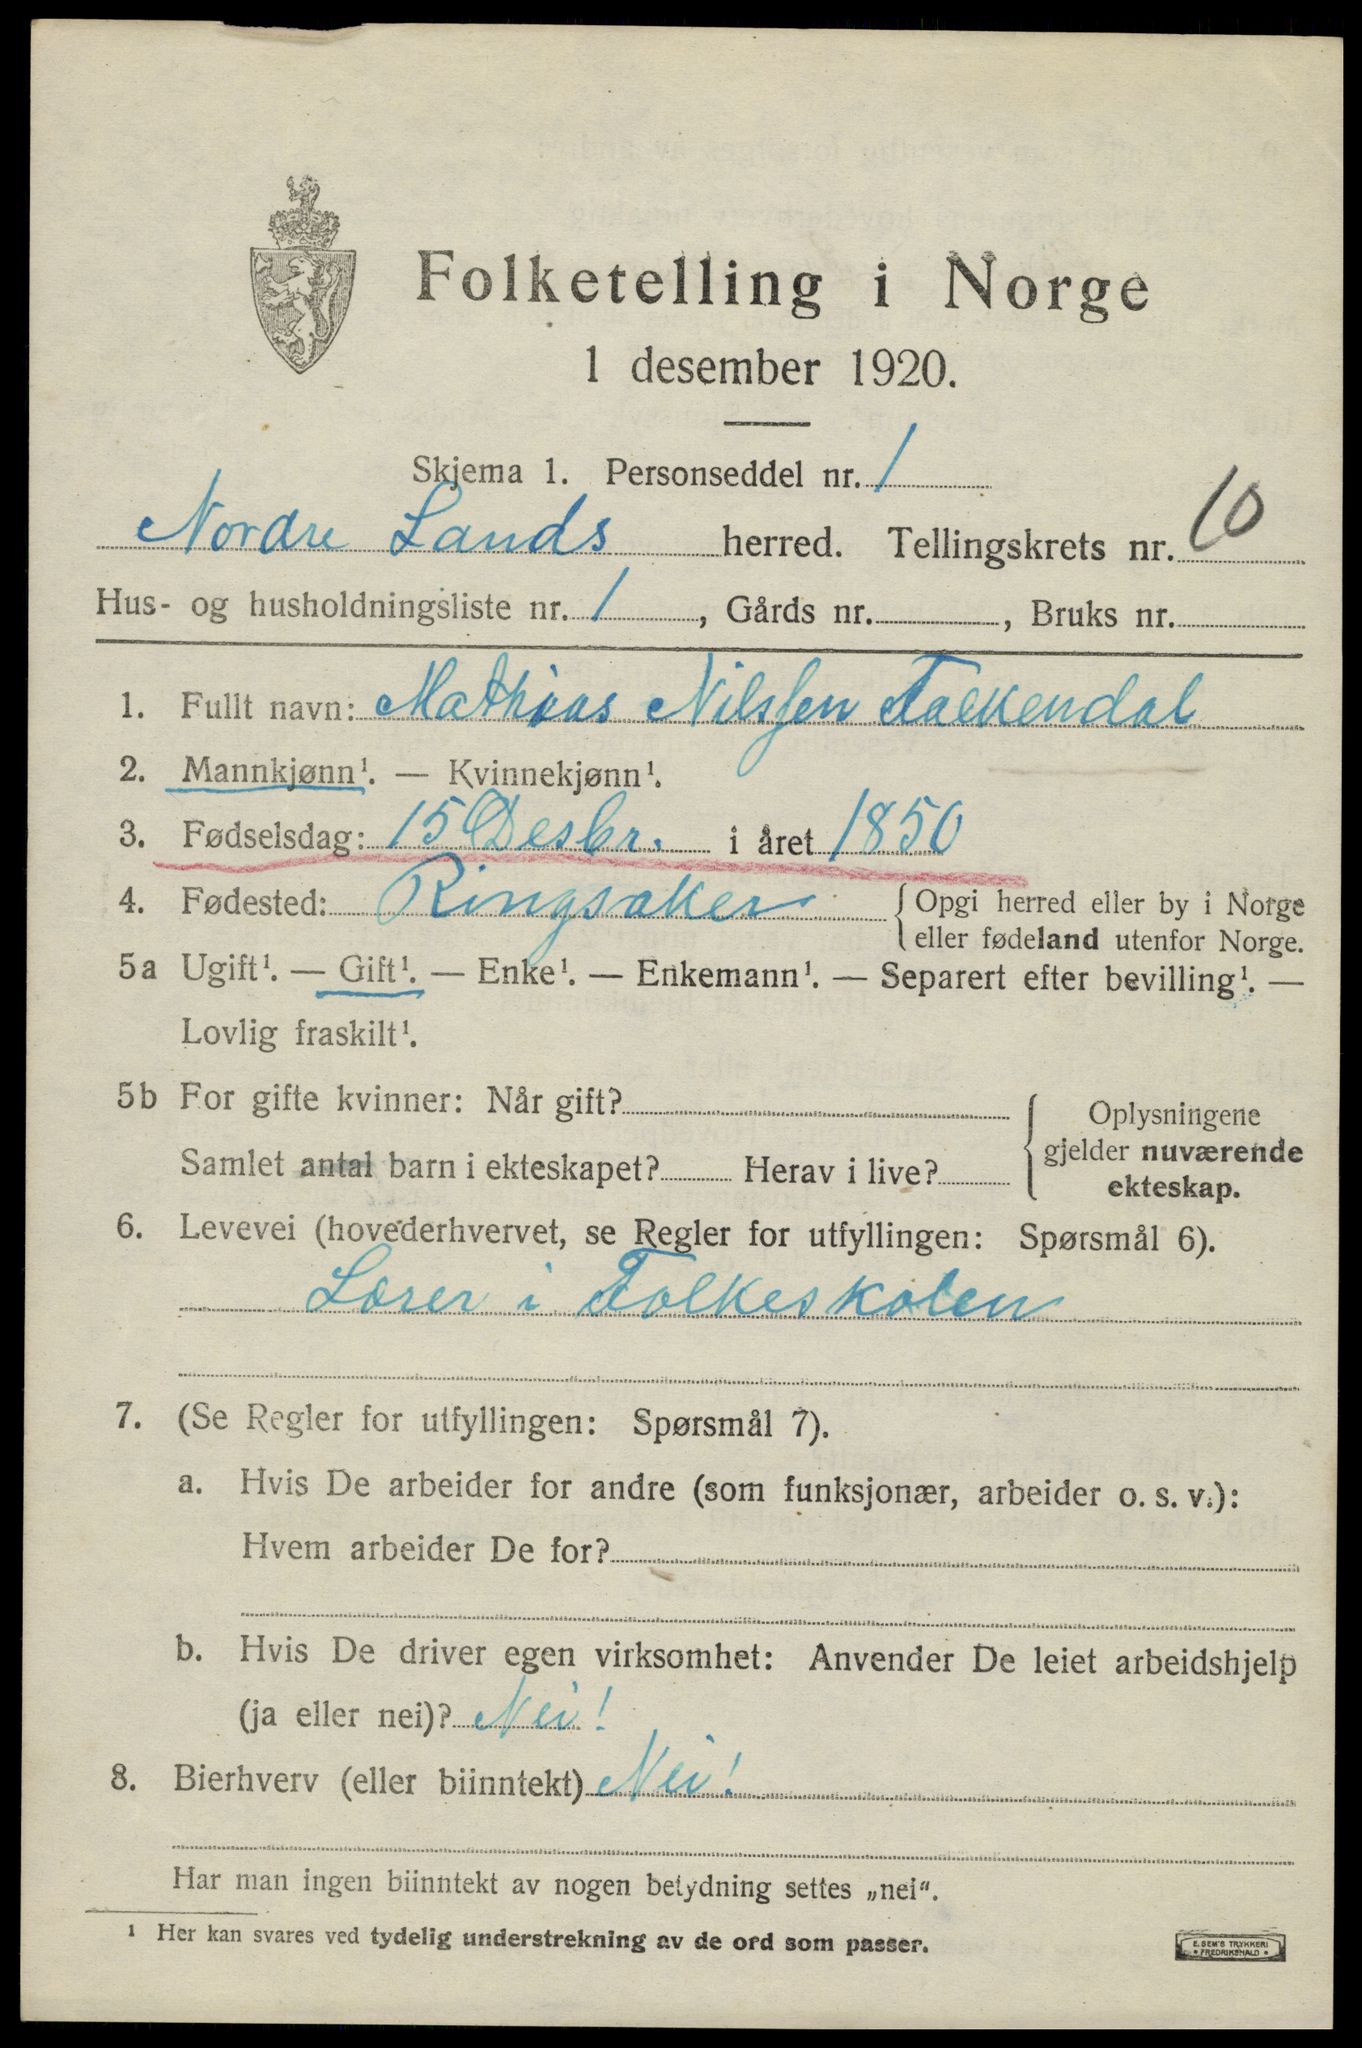 Folketelling i Norge
1 desember 1920.
Skjema 1. Personseddel nr. 1
Nordre Lands herred. Tellingskrets nr. 10
Hus- og husholdningsliste nr. 1, Gårds nr. , Bruks nr.
1. Fullt navn: Mathias Nilssen Falkendal
2. Mannkjønn¹. — Kvinnekjønn¹.
3. Fødselsdag: 15 Desbr. i året 1850
4. Fødested: Ringsaker { Opgi herred eller by i Norge
eller fødeland utenfor Norge.
5a Ugift¹. — Gift¹. — Enke¹. — Enkemann¹. — Separert efter bevilling¹. —
Lovlig fraskilt¹.
5b For gifte kvinner: Når gift?
Samlet antal barn i ekteskapet? Herav i live?
{ Oplysningene
gjelder nuværende
ekteskap.
6. Levevei (hovederhvervet, se Regler for utfyllingen: Spørsmål 6).
Lærer i Folkeskolen
7. (Se Regler for utfyllingen: Spørsmål 7).
a. Hvis De arbeider for andre (som funksjonær, arbeider o. s. v.):
Hvem arbeider De for?
b. Hvis De driver egen virksomhet: Anvender De leiet arbeidshjelp
(ja eller nei)? Nei!
8. Bierhverv (eller biinntekt) Nei!
Har man ingen biinntekt av nogen betydning settes „nei“.
¹ Her kan svares ved tydelig understrekning av de ord som passer.
E. SEM'S TRYKKERI
FREDRIKSHALD